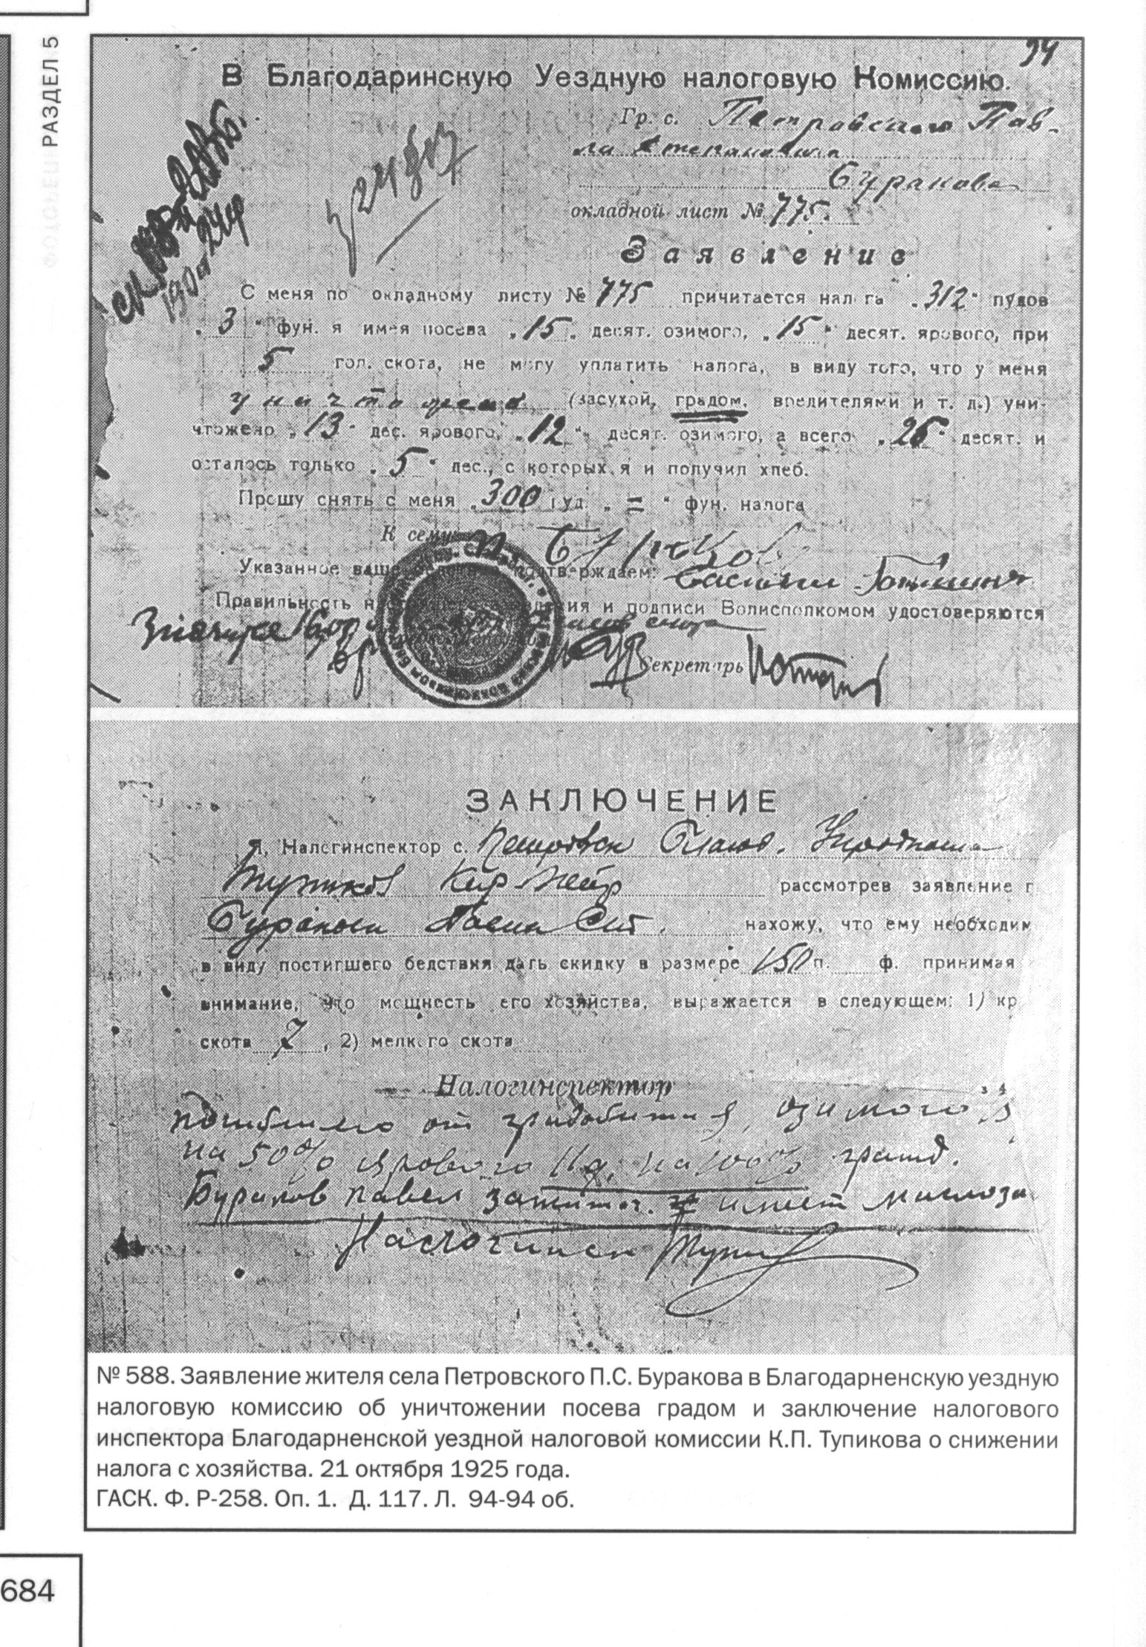 РАЗДЕЛ 5
94
В Благодаринскую Уездную налоговую Комиссию.
Гр. с. Петровского Пав-
ла Степановича
Буракова
окладной лист № 775.
Заявление
С меня по окладному листу № 775 причитается нал га "312" пудов
"3" фун. я имея посева "15" десят. озимого, "15" десят. ярового, при
5 гол. скота, не могу уплатить налога, в виду того, что у меня
уничтожена (засухой, градом, вредителями и т. д.) уни-
чтожено "13" дес. ярового, "12" десят. озимого, а всего "25" десят. и
осталось только "5" дес., с которых я и получил хлеб.
Прошу снять с меня "300" пуд. "=" фун. налога
К сему
Указанное выше подтверждаем:
Правильность и подписи Волисполкомом удостоверяются
Секретарь
ЗАКЛЮЧЕНИЕ
Я, Налогинспектор с. Петровск Благод.
Тупиков Кир Петр рассмотрев заявление г
Буракова Павла Ст. нахожу, что ему необходим
в виду постигшего бедствия дать скидку в размере 150 п. ф. принимая
внимание, что мощность его хозяйства, выражается в следующем: 1) кр
скота 7, 2) мелкого скота
Налогинспектор
погиблого от градобития озимого
на 50% ярового 11 д. на 100%
Бураков Павел зажиточ. имеет
Налогинсп Тупи
№ 588. Заявление жителя села Петровского П.С. Буракова в Благодарненскую уездную
налоговую комиссию об уничтожении посева градом и заключение налогового
инспектора Благодарненской уездной налоговой комиссии К.П. Тупикова о снижении
налога с хозяйства. 21 октября 1925 года.
ГАСК. Ф. Р-258. Оп. 1. Д. 117. Л. 94-94 об.
684